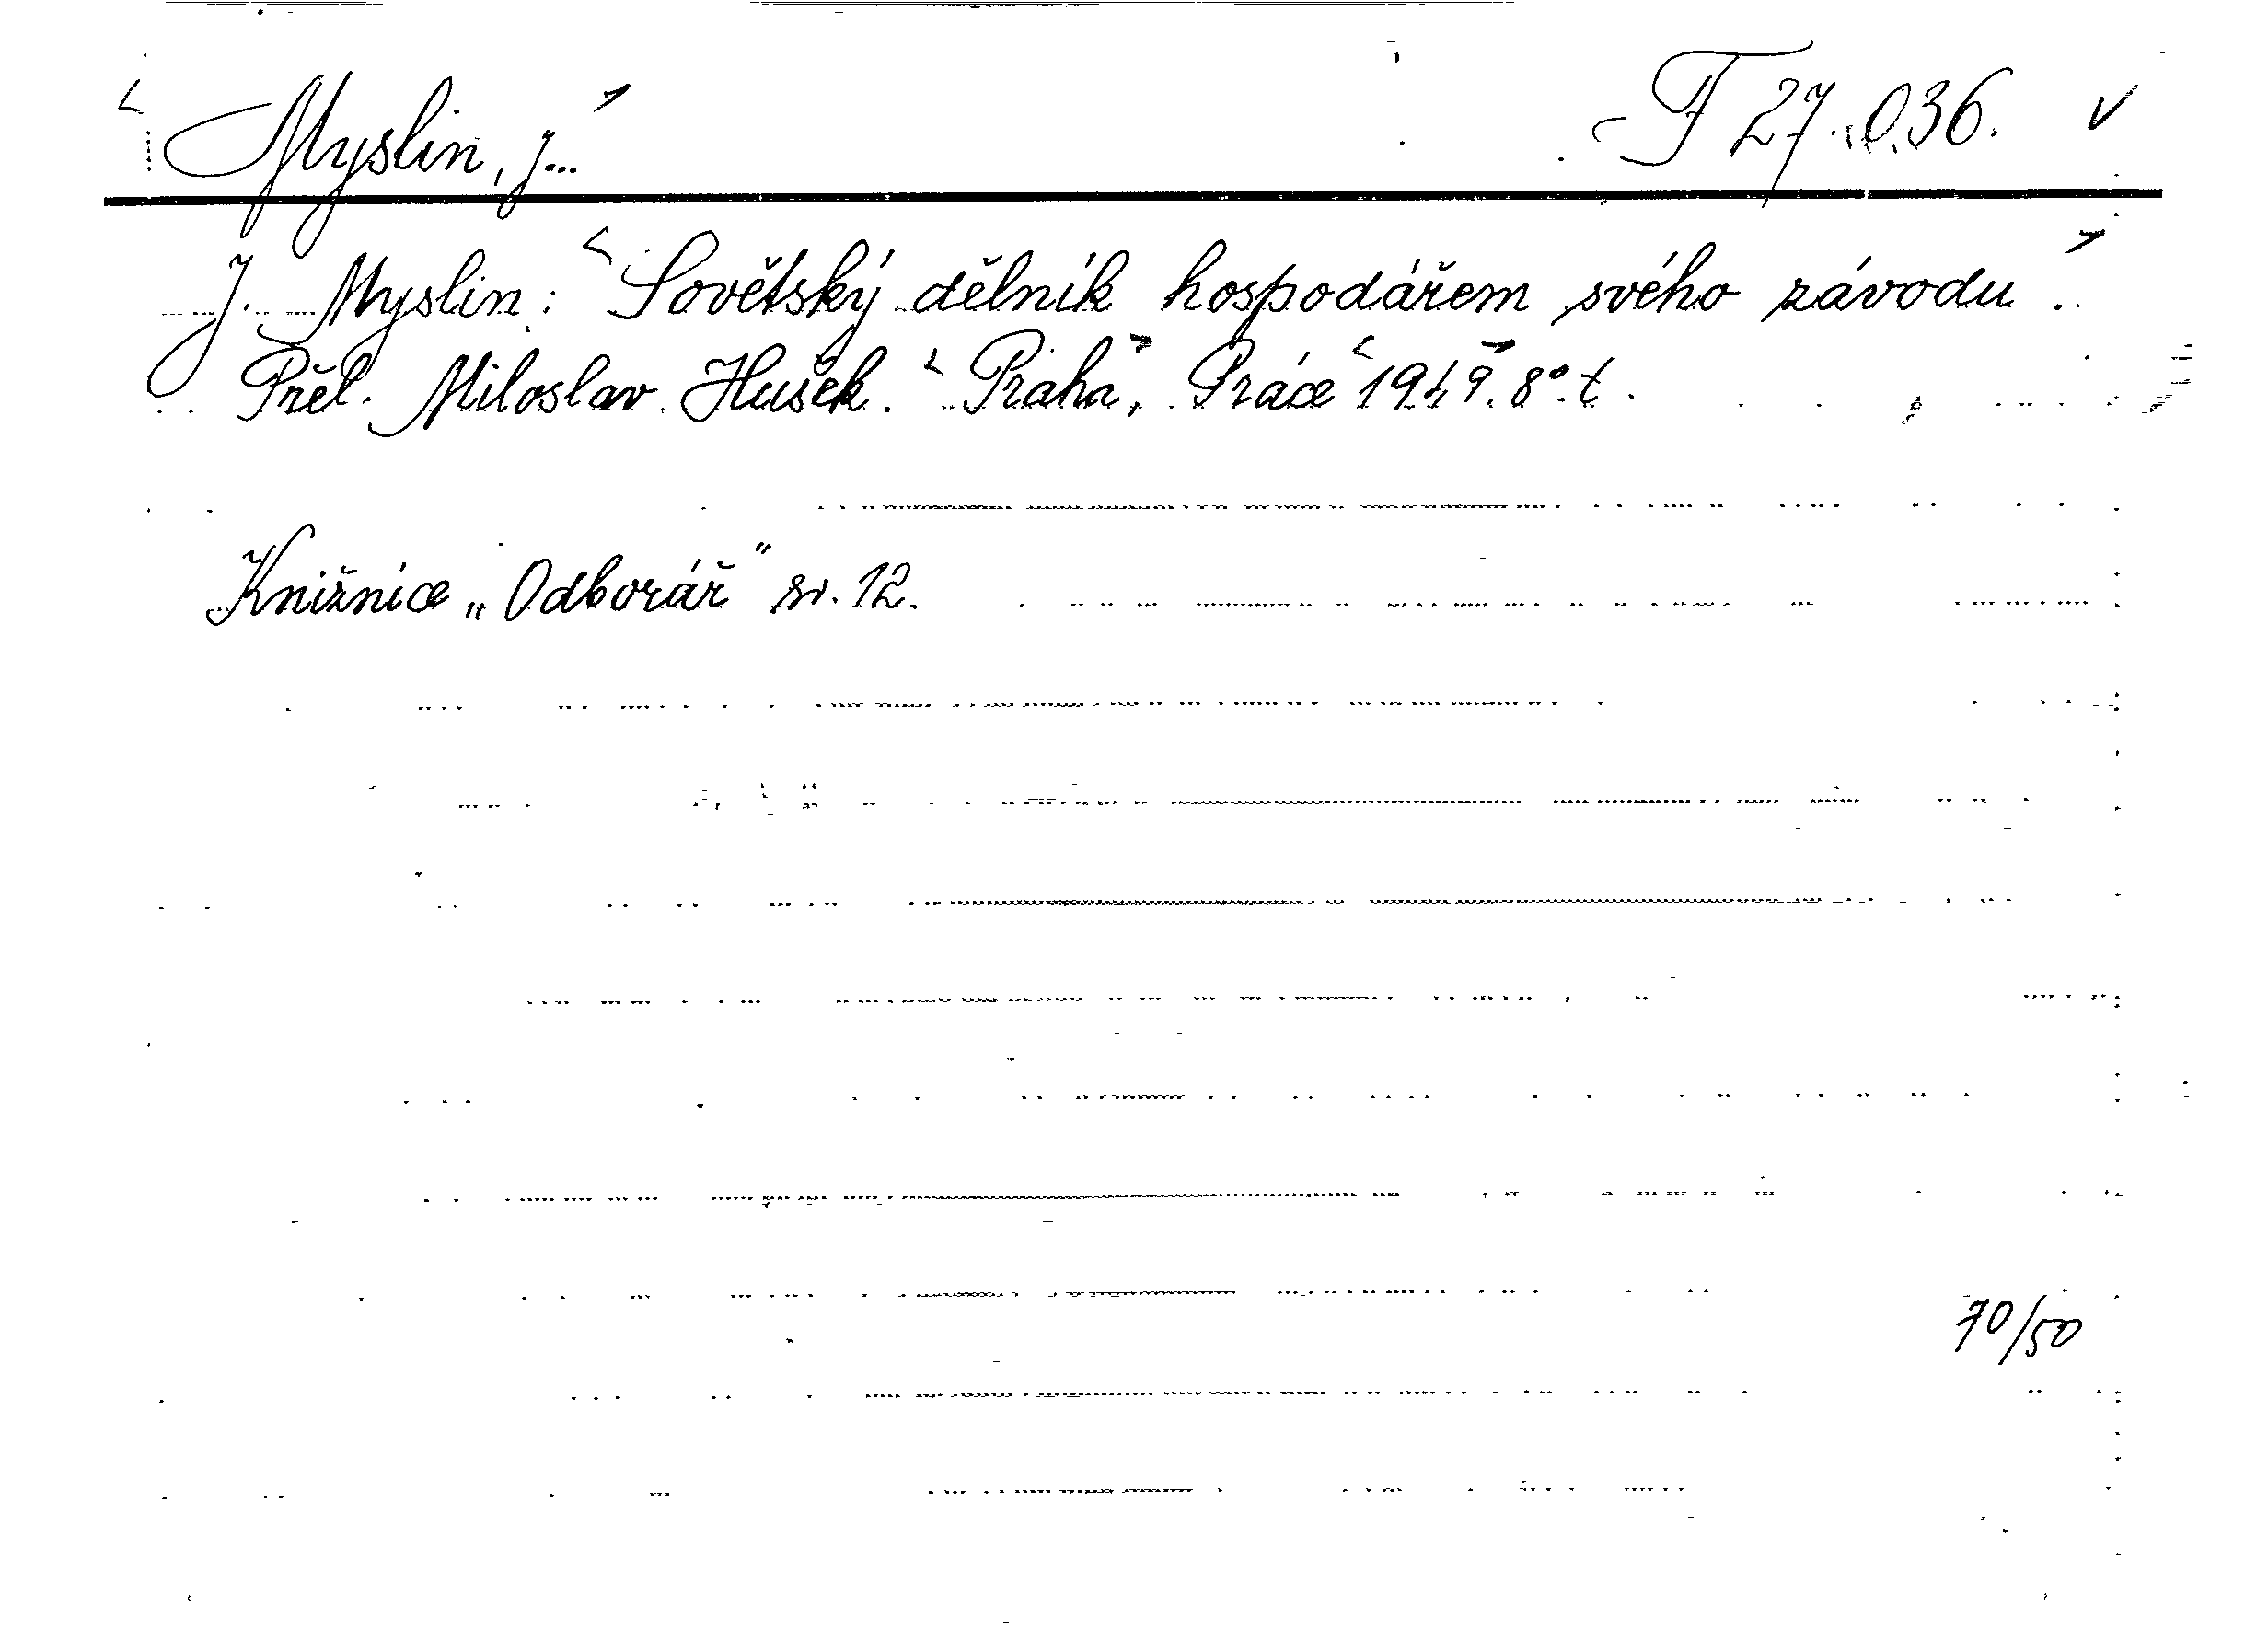 Myslin, J... F 27.036. v
J. Myslin: Sovětský dělník hospodářem svého závodu.
Přel. Miloslav Hušek. Praha, Práce 1949. 8°. t.
Knižnice „Odborář“ sv. 12.
70/50